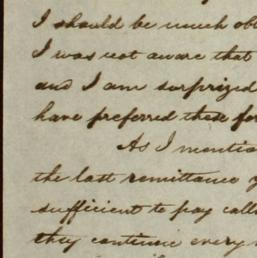 I should be much obl
I was not aware that
and I am surprized
have preferred these for
As I mentio
the last remittance
sufficient to pay calls
they continue every